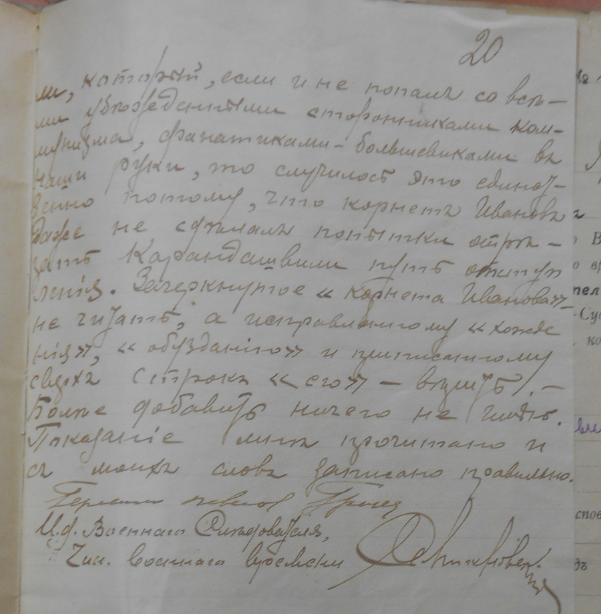 20
ми, который, если и не попалъ со всѣ-
ми убѣжденными сторонниками ком-
мунизма, фанатиками-большевиками въ
наши руки, то случилось это единст-
венно потому, что корнетъ Ивановъ
даже не сдѣлалъ попытки отрѣ-
зать Карандашвили путь отступ
ленія. Зачеркнутое « корнета Иванова»-
не читать, а исправленному «хожде
нія», « обузданію» и приписанному
сверхъ строкъ « его» - вѣрить. -
Болѣе добавить ничего не имѣю.
Показаніе мнѣ прочитано и
съ моихъ словъ записано правильно.
И.д. Военнаго Слѣдователя,
Чин. военнаго времени